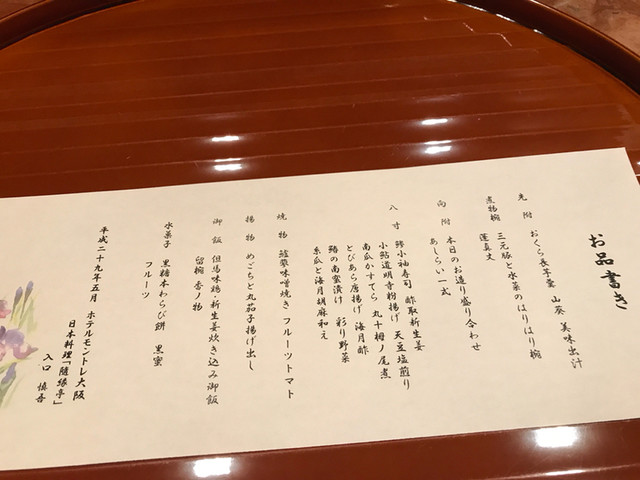 お品書き
先附 おくら長芋羹 山葵 美味出汁
煮物椀 三元豚と水菜のはりはり椀
蓮真丈
向附 本日のお造り盛り合わせ
あしらい一式
八寸 鯵小袖寿司 酢取新生姜
小鮎道明寺粉揚げ 天豆塩煎り
南瓜かすてら 丸十梔ノ尾煮
とびあら唐揚げ 海月酢
鱚の南蛮漬け 彩り野菜
糸瓜と海月胡麻和え
焼物 味噌焼き フルーツトマト
揚物 めごちと丸茄子揚げ出し
御飯 但馬味鶏・新生姜炊き込み御飯
留椀 香ノ物
水菓子 黒糖本わらび餅 黒蜜
フルーツ
平成二十九年五月 ホテルモントレ大阪
日本料理「随縁亭」
入口